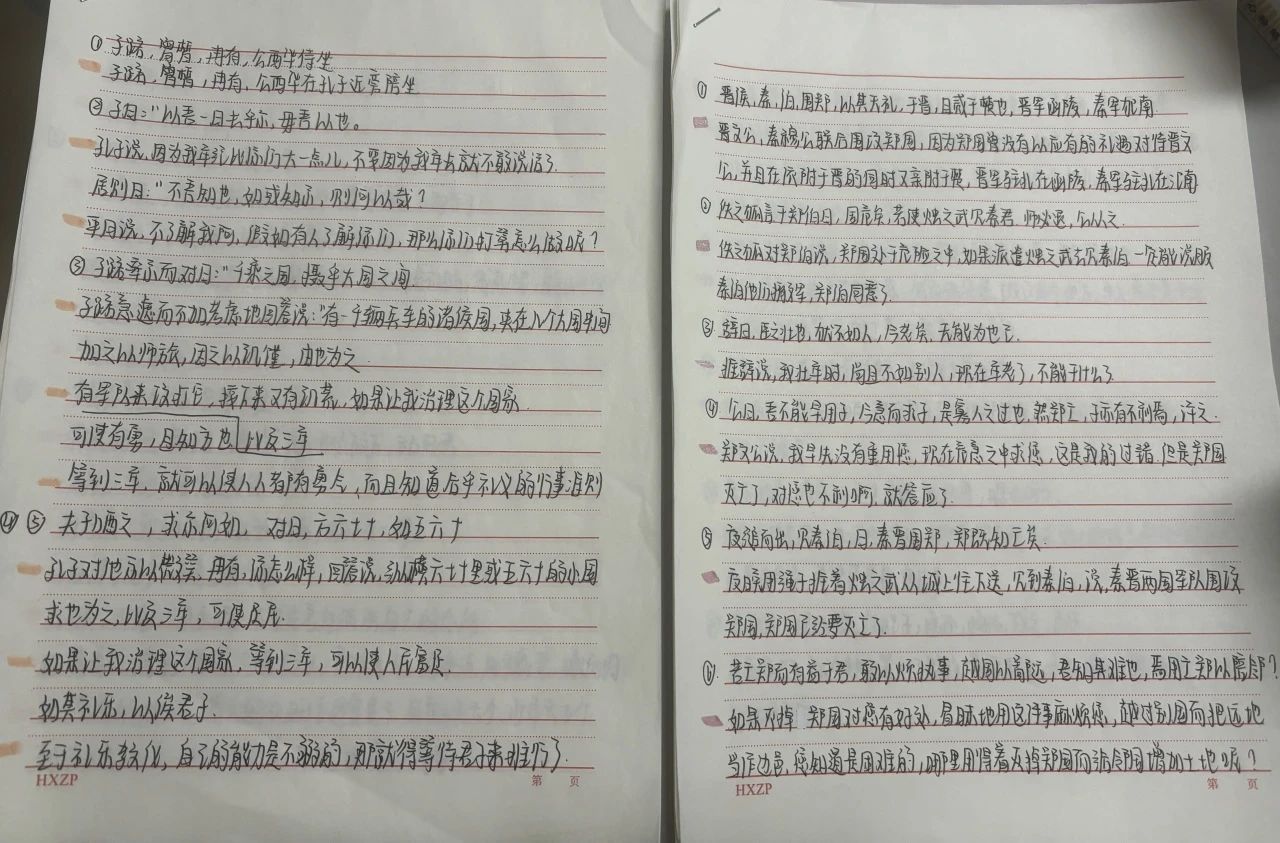 ① 子路、曾晳,冉有,公西华侍坐
子路、曾晳,冉有,公西华在孔子近旁陪坐
② 子曰:"以吾一日长乎尔,毋吾以也。
孔子说,因为我年纪比你们大一点儿,不要因为我年长就不敢说话了.
居则曰:"不吾知也,如或知尔,则何以哉?
平日说,不了解我阿,假如有人了解你们,那么你们打算怎么做呢?
③ 子路率尔而对曰:"千乘之国,摄乎大国之间
子路急遽而不加考虑地回答说:"有一千辆兵车的诸侯国,夹在几个大国中间
加之以师旅,因之以饥馑,由也为之
有军队来攻打它,接下来又有饥荒,如果让我治理这个国家.
可使有勇,且知方也 比及三年
等到三年,就可以使人人都有勇气,而且知道合乎礼义的行事准则
④ ⑤ 夫子哂之,求尔何如,对曰,方六七十,如五六十
孔子对他 以微笑,冉有,你怎么样,回答说,纵横六七十里或五六十的小国
求也为之,比及三年,可使足民.
如果让我治理这个国家,等到三年,可以使人民富足.
如其礼乐,以俟君子.
至于礼乐教化,自己的能力是不够的,那就得等待君子来推行了.
HXZP 第 页
① 晋侯,秦,伯,围郑,以其无礼,于晋,且贰于楚也,晋军函陵,秦军氾南
晋文公,秦穆公联合围攻郑国,因为郑国曾没有以应有的礼遇对待晋文
公,并且在依附于晋的同时又亲附于楚,晋军驻扎在函陵,秦军驻扎在氾南
② 佚之狐言于郑伯曰,国危矣,若使烛之武见秦君.师必退,公从之.
佚之狐对郑伯说,郑国处于危险之中,如果派遣烛之武去见秦伯一定能说服
秦伯他们撤军,郑伯同意了.
③ 辞曰,臣之壮也,犹不如人,今老矣,无能为也已.
推辞说,我壮年时,尚且不如别人,现在年老了,不能干什么了.
④ 公曰,吾不能早用子,今急而求子,是寡人之过也,然郑亡,子亦有不利焉,许之.
郑文公说,我早先没有重用您,现在危急之中求您,这是我的过错.但是郑国
灭亡了,对您也不利啊,就答应了.
⑤ 夜缒而出,见秦伯,曰,秦晋围郑,郑既知亡矣.
夜晚用绳子拴着烛之武从城上往下送,见到秦伯,说,秦晋两国军队围攻
郑国,郑国已经要灭亡了.
⑥ 若亡郑而有益于君,敢以烦执事,越国以鄙远,君知其难也,焉用亡郑以陪邻?
如果灭掉 郑国对您有好处,冒昧地用这件事麻烦您,越过别国而把远地
当作边邑,您知道是困难的,哪里用得着灭掉郑国而给邻国增加土地呢?
HXZP 第 页